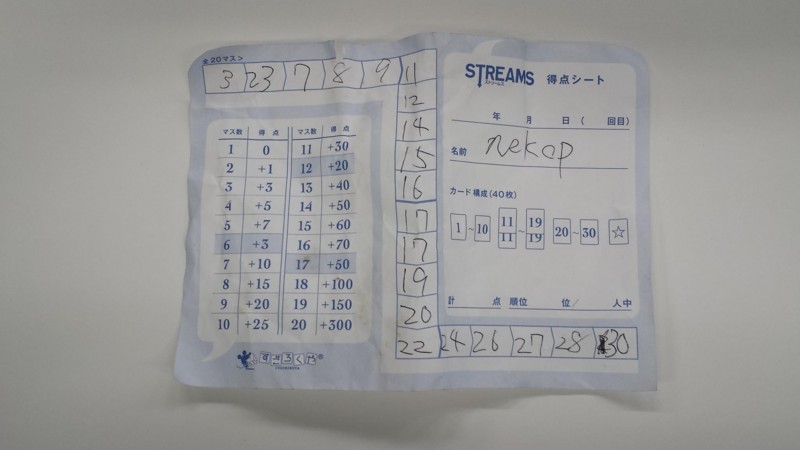 全20マス>
3 23 7 8 9 11
12
14
15
16
17
17
19
20
22 24 26 27 28 30
マス数 得点 マス数 得点
1 0 11 +30
2 +1 12 +20
3 +3 13 +40
4 +5 14 +50
5 +7 15 +60
6 +3 16 +70
7 +10 17 +50
8 +15 18 +100
9 +20 19 +150
10 +25 20 +300
すごろくや®
STREAMS 得点シート
ストリームス
年 月 日 ( 回目)
名前 nekop
カード構成(40枚)
1 ~ 10 11 11 ~ 19 19 20 ~ 30 ☆
計 点 順位 位/ 人中